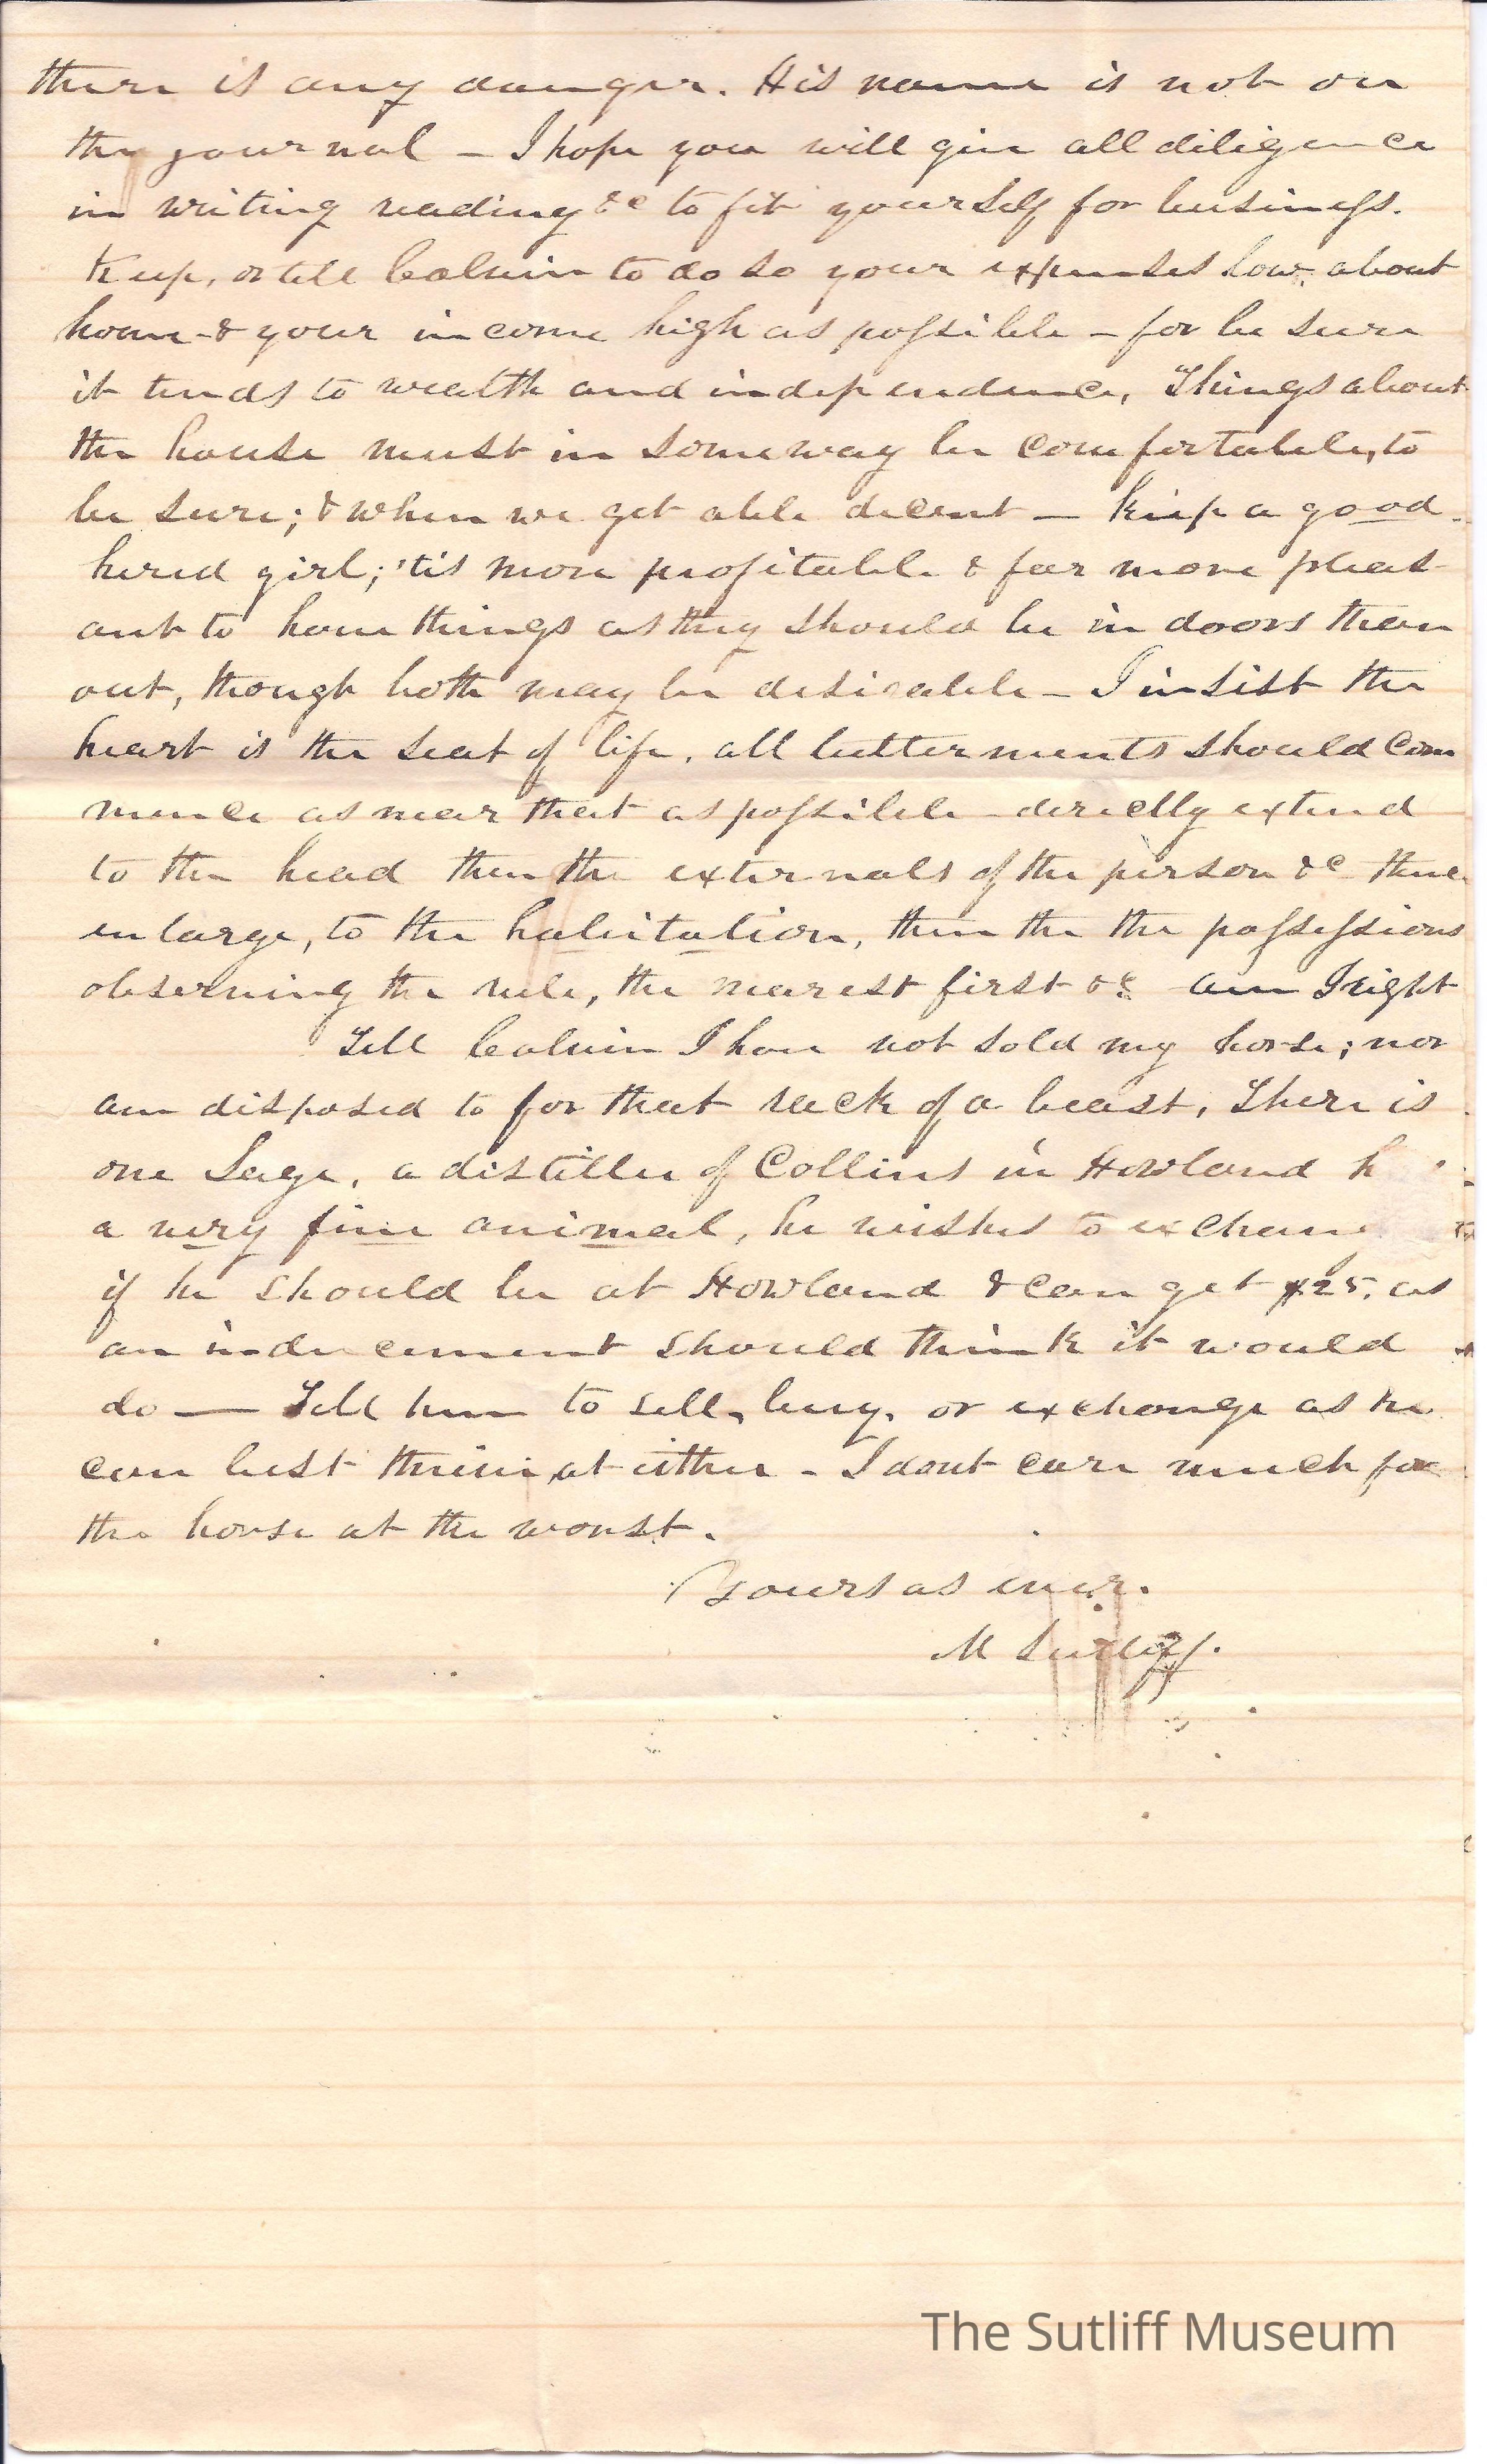 there is any danger. His name is not on
the journal – I hope you will give all diligence
in writing reading &c to fit yourself for business.
Keep, or tell Calvin to do so your expenses low, about
home & your income high as possible – for be sure
it tends to wealth and independence, Things about
the house must in some way be comfortable, to
be sure; & when we get able decent – keep a good
hired girl; 'tis more profitable & far more pleas
ant to have things as they should be in doors than
out, though both may be desirable – I insist the
heart is the seat of life, all betterments should com
mence as near that as possible – directly extend
to the head then the externals of the person &c thence
enlarge, to the habitation, then the the possessions
observing the rule, the nearest first &c am I right
Tell Calvin I have not sold my horse; nor
am disposed to for that rack of a beast, There is
one Sage, a distiller of Collins in Howland h
a very fine animal, he wishes to exchan
if he should be at Howland & can get $25, as
an inducement should think it would
do — Tell him to sell, buy, or exchange as he
can best thrive, at either – I dont care much for
the horse at the worst.
Yours as ever.
M Sutliff.
The Sutliff Museum